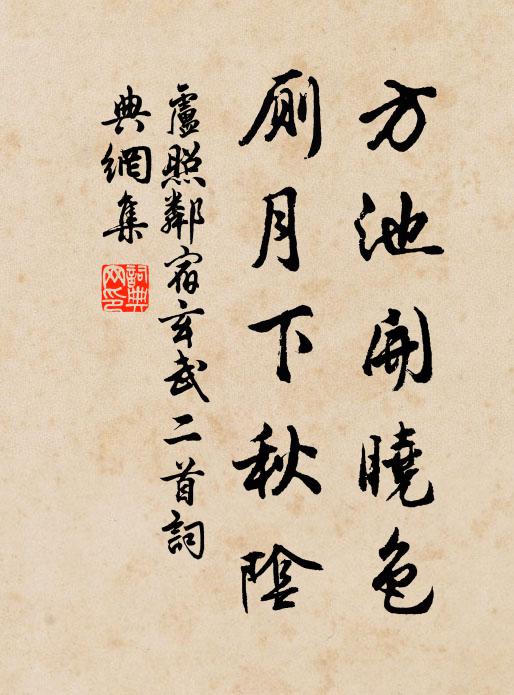 方池開曉色
圓月下秋陰
盧照鄰宿玄武二首詞
典網集
詞典
网印